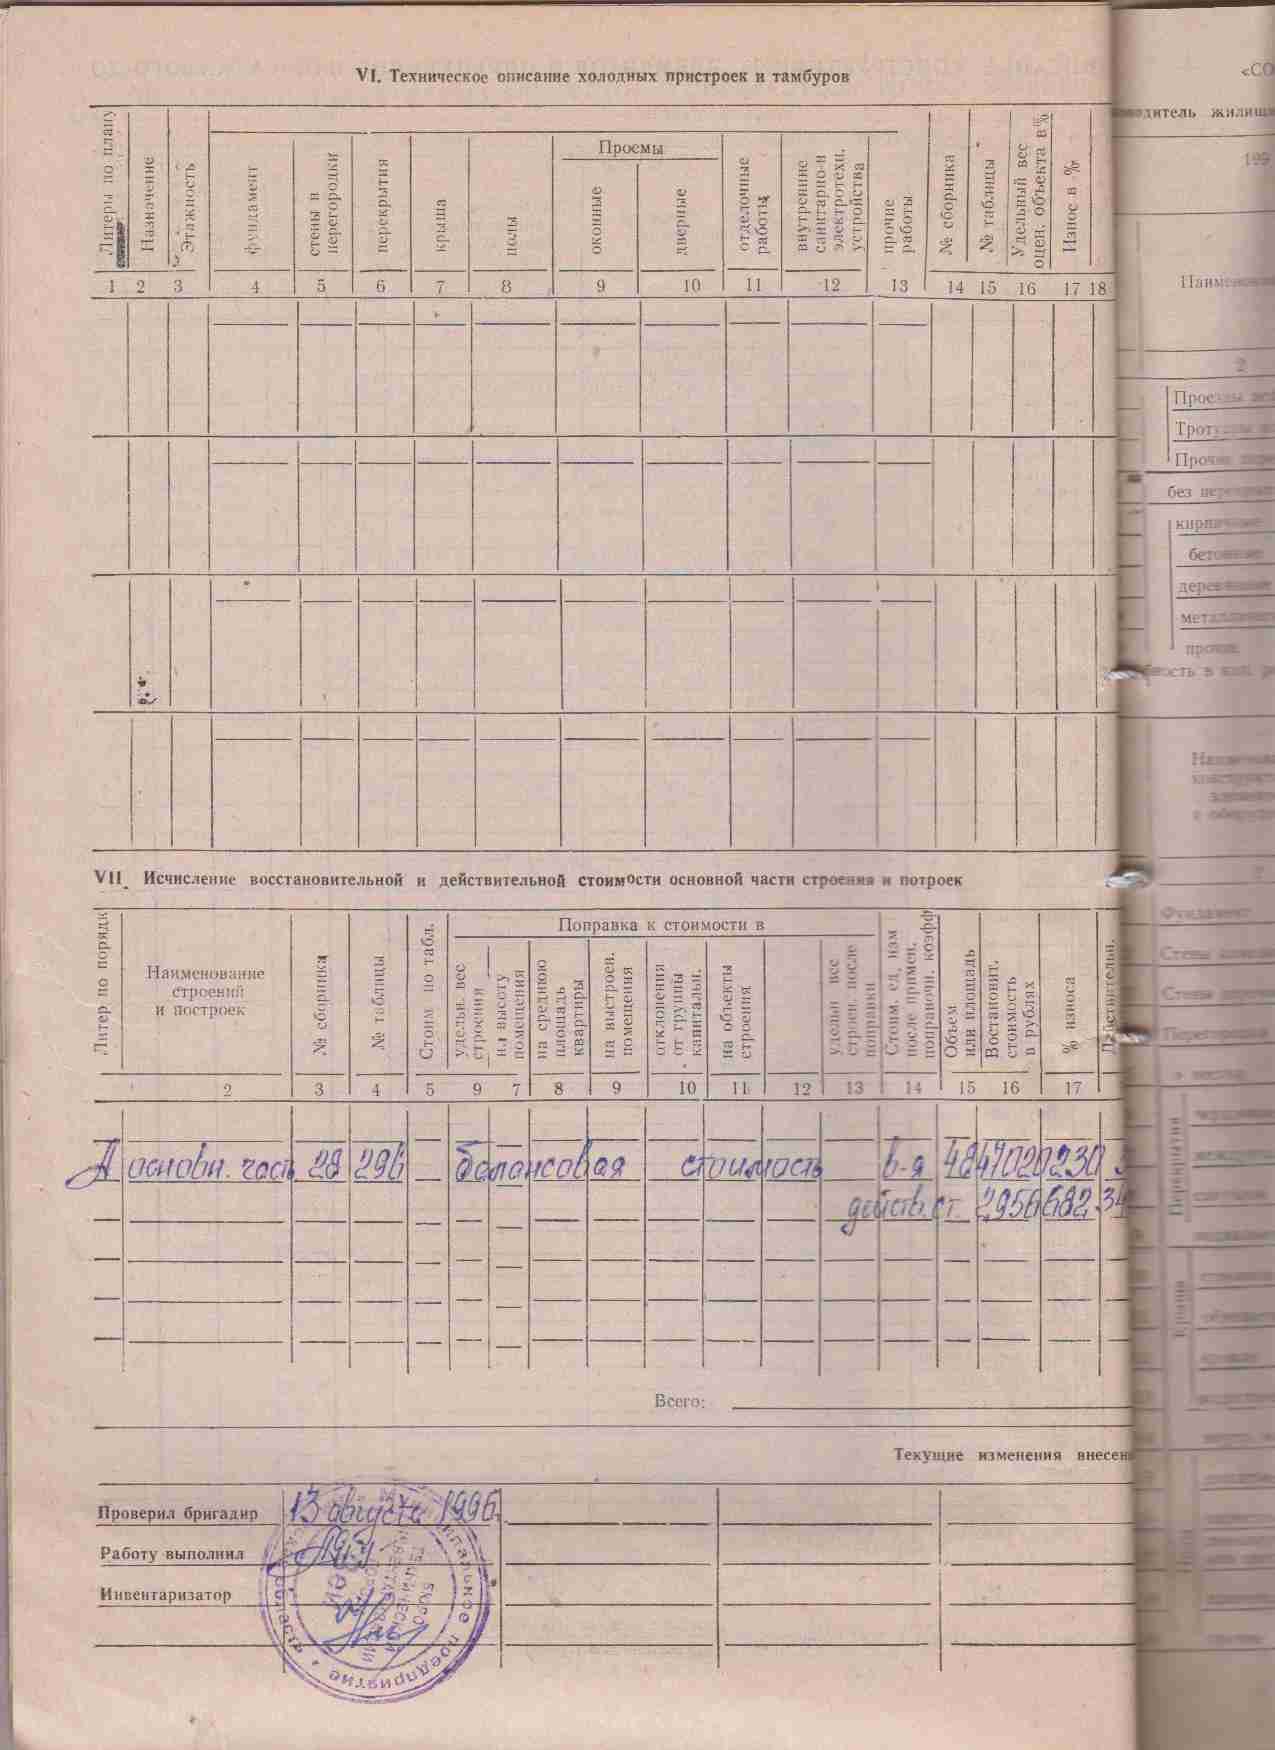 VI. Техническое описание холодных пристроек и тамбуров
Литеры по плану
Назначение
Этажность
фундамент
стены и перегородки
перекрытия
крыша
полы
Проемы
оконные
дверные
отделочные работы
внутренние санитарно-и электротехн. устройства
прочие работы
№ сборника
№ таблицы
Удельный вес оцен. объекта в %
Износ в %
1 2 3 4 5 6 7 8 9 10 11 12 13 14 15 16 17 18
VII. Исчисление восстановительной и действительной стоимости основной части строения и потроек
Литер по порядк
Наименование
строений
и построек
№ сборника
№ таблицы
Стоим по табл.
Поправка к стоимости в
удельн. вес строения
на высоту помещения
на среднюю площадь квартиры
на выстроен. помещения
отклонения от группы капитальн.
на объекты строения
удельн вес строен. после поправки
Стоим. ед. изм после примен. поправочн. коэфф
Объем или площадь
Востановит. стоимость в рублях
% износа
Действительн.
2 3 4 5 9 7 8 9 10 11 12 13 14 15 16 17
А основн. часть 28 296 балансовая стоимость в-я 4847020230
действ. ст. 2956682,34
Всего:
Текущие изменения внесен
Проверил бригадир 13 августа 1996
Работу выполнил
Инвентаризатор
предприятие
бюро
технической
«СО
водитель жилищ
199
Наименован
2
Проезды
Тротуары
Прочие
без
кирпичные
бетонные
деревянные
прочие
Фундамент
Стены
Стены
Перекрытия
Крыша